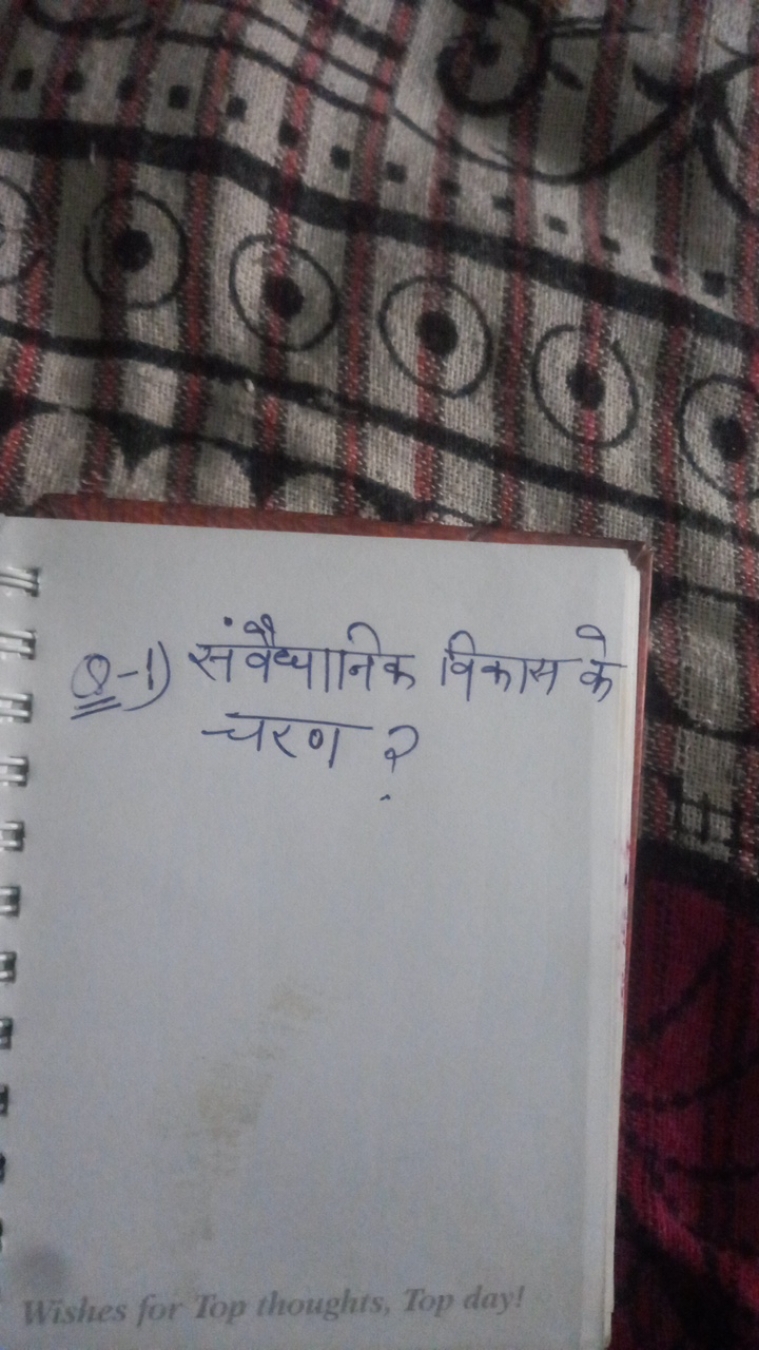 Q-1) संवैधानिक विकास के
चरण ?
Wishes for Top thoughts, Top day!